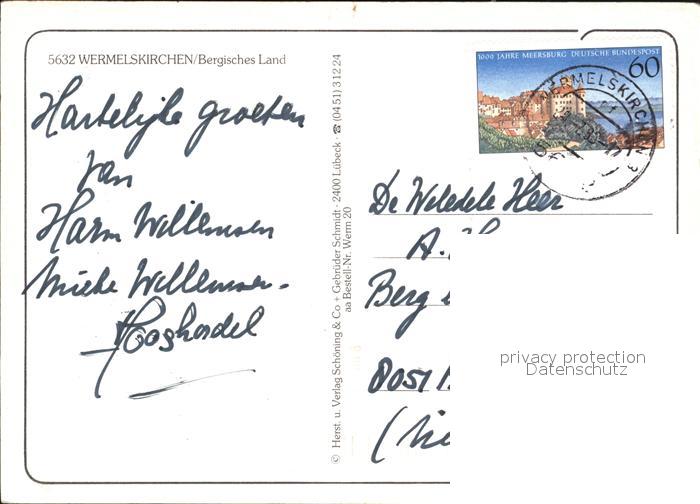 5632 WERMELSKIRCHEN/Bergisches Land
Hartelijke groeten
van
Harm Willemsen
Mieke Willemsen-
© Herst. u. Verlag Schöning & Co + Gebrüder Schmidt · 2400 Lübeck · ☎ (04 51) 3 12 24
aa Bestell-Nr. Werm 20
1000 JAHRE MEERSBURG DEUTSCHE BUNDESPOST
60
WERMELSKIRCHEN 3
De Weledele Heer
A.
Berg
(
privacy protection
Datenschutz